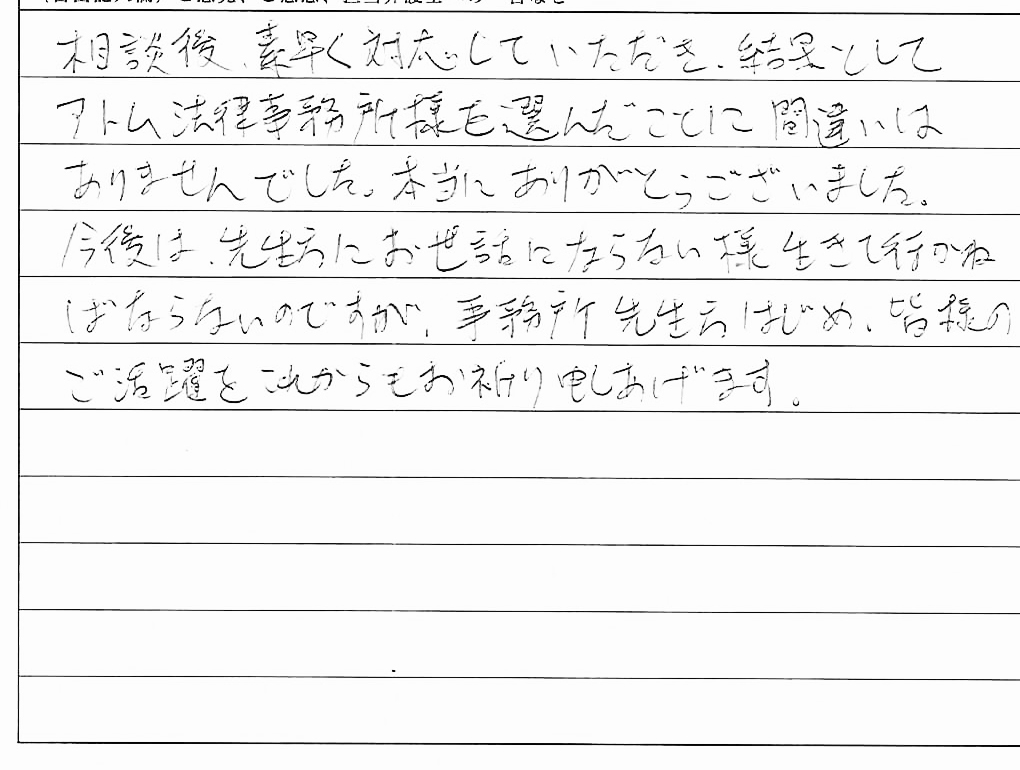 相談後、素早く対応していただき、結果として
アトム法律事務所様を選んだことに間違いは
ありませんでした。本当にありがとうございました。
今後は、先生方にお世話にならない様生きて行かね
ばならないのですが、事務所先生方はじめ、皆様の
ご活躍をこれからもお祈り申しあげます。